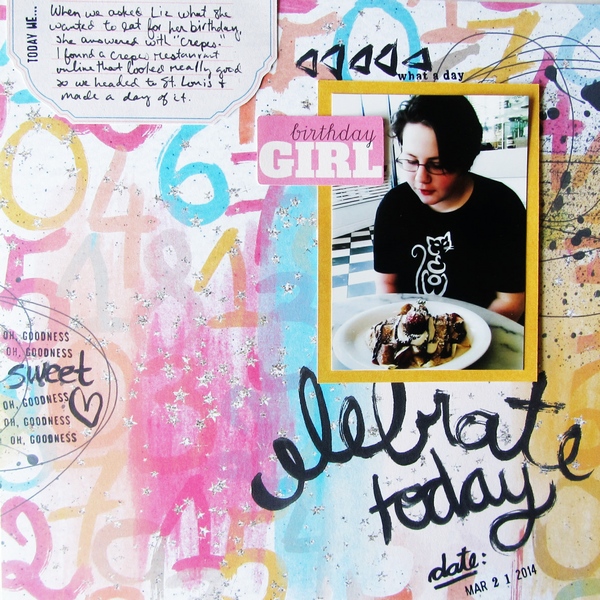 TODAY WE...
When we asked Liz what she
wanted to eat for her birthday,
she answered with "Crepes."
I found a crepe restaurant
online that looked really good
so we headed to St. Louis &
made a day of it.
what a day
birthday
GIRL
OH, GOODNESS
OH, GOODNESS
sweet
OH, GOODNESS
OH, GOODNESS
OH, GOODNESS
celebrate
today
date:
MAR 21 2014